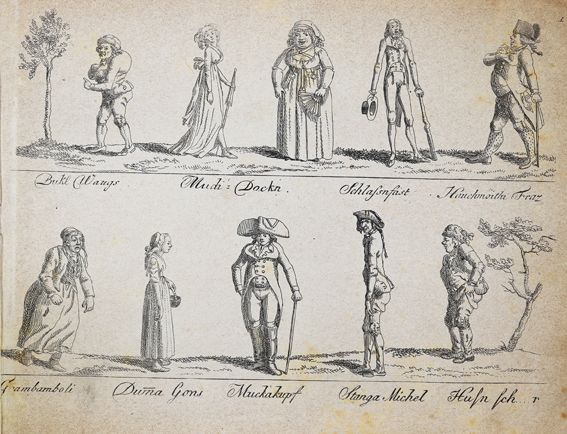 1
Bukl Waugs Mudi = Dockn. Schlafsnfast Hauchmoithi Fraz
Trambamboli Dum̄a Gons Muckakupf Stanga Michel Husn sch... r